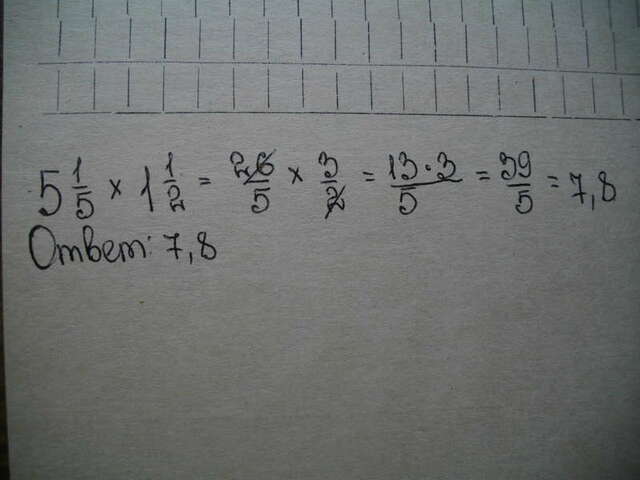 5 1/5 × 1 1/2 = 26/5 × 3/2 = 13·3/5 = 39/5 = 7,8
Ответ: 7,8